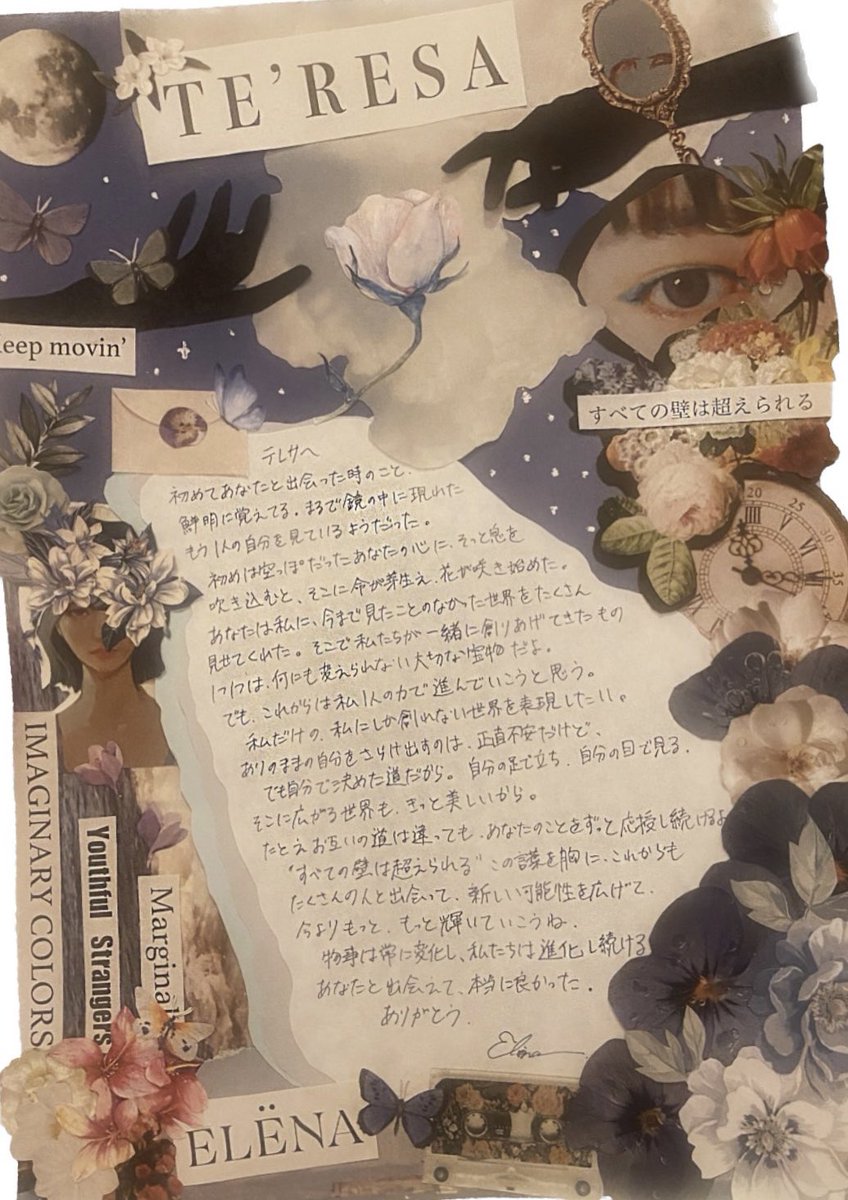 TE'RESA
eep movin'
すべての壁は超えられる
テレサへ
初めてあなたと出会った時のこと、
鮮明に覚えてる。まるで鏡の中に現れた
もう1人の自分を見ているようだった。
初めは空っぽだったあなたの心に、そっと息を
吹き込むと、そこに命が芽生え、花が咲き始めた。
あなたは私に、今まで見たことのなかった世界をたくさん
見せてくれた。そこで私たちが一緒に創りあげてきたもの
1つ1つは、何にも変えられない大切な宝物だよ。
でも、これからは私1人の力で進んでいこうと思う。
私だけの、私にしか創れない世界を表現したい。
ありのままの自分をさらけ出すのは、正直不安だけど、
でも自分で決めた道だから。自分の足で立ち、自分の目で見る、
そこに広がる世界も、きっと美しいから。
たとえお互いの道は違っても、あなたのことをずっと応援し続けるよ
"すべての壁は超えられる"この言葉を胸に、これからも
たくさんの人と出会って、新しい可能性を広げて、
今よりもっと、もっと輝いていこうね。
物事は常に変化し、私たちは進化し続ける
あなたと出会えて、本当に良かった。
ありがとう。
Elëna
IMAGINARY COLORS
Youthful Strangers
Marginal
ELËNA
20
25
30
35